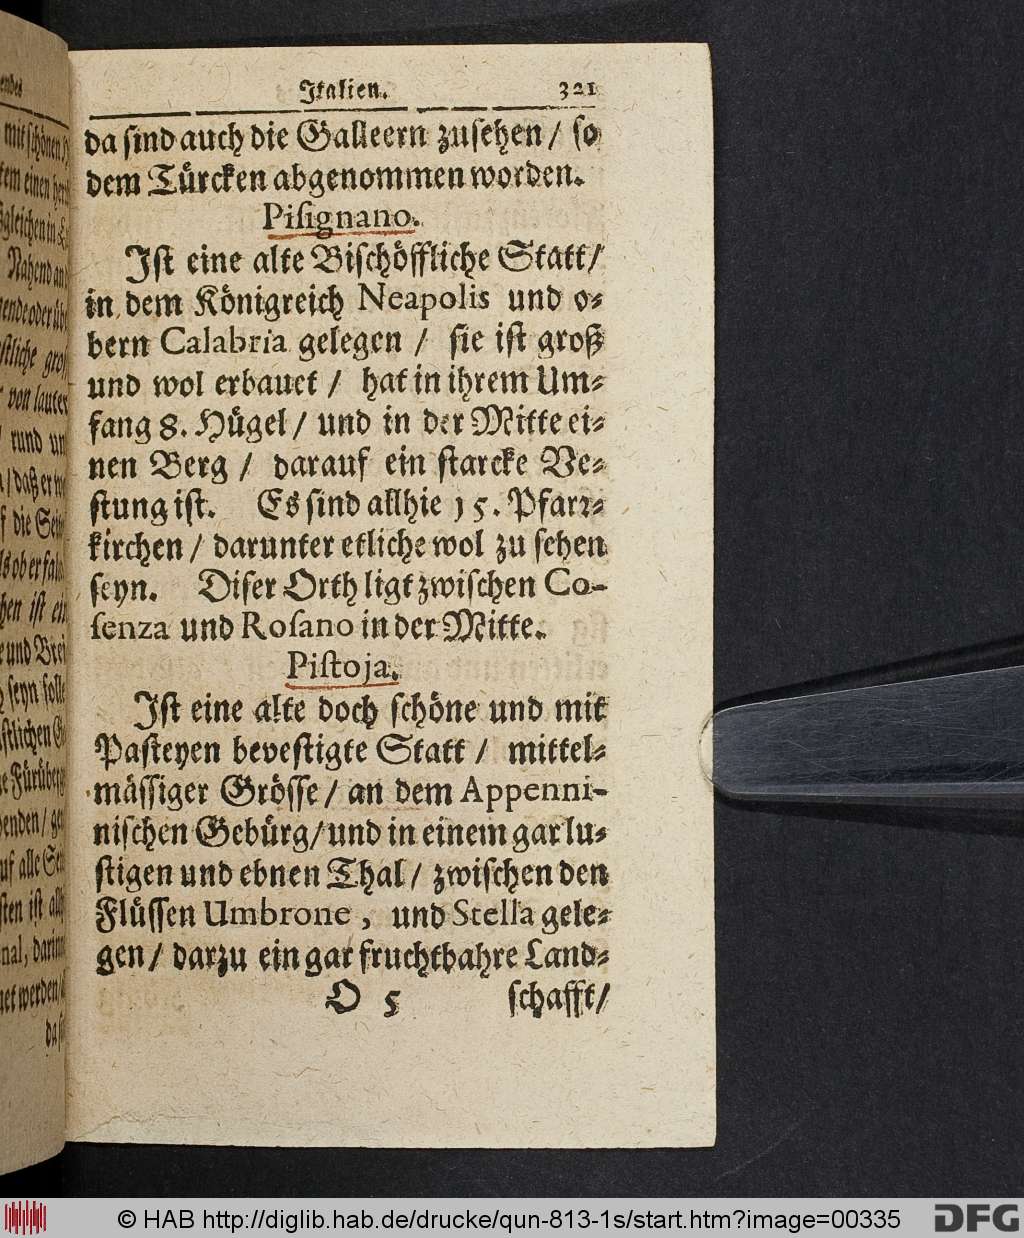 Italien. 321
da sind auch die Galleern zusehen / so
dem Türcken abgenommen worden.
Pisignano.
Ist eine alte Bischöffliche Statt /
in dem Königreich Neapolis und o-
bern Calabria gelegen / sie ist groß
und wol erbauet / hat in ihrem Um-
fang 8. Hügel / und in der Mitte ei-
nen Berg / darauf ein starcke Ve-
stung ist. Es sind allhie 15. Pfarr-
kirchen / darunter etliche wol zu sehen
seyn. Diser Orth ligt zwischen Co-
senza und Rosano in der Mitte.
Pistoja.
Ist eine alte doch schöne und mit
Pasteyen bevestigte Statt / mittel-
mässiger Grösse / an dem Appenni-
nischen Gebürg / und in einem gar lu-
stigen und ebnen Thal / zwischen den
Flüssen Umbrone, und Stella gele-
gen / darzu ein gar fruchtbahre Land-
O 5 schafft /
© HAB http://diglib.hab.de/drucke/qun-813-1s/start.htm?image=00335
DFG